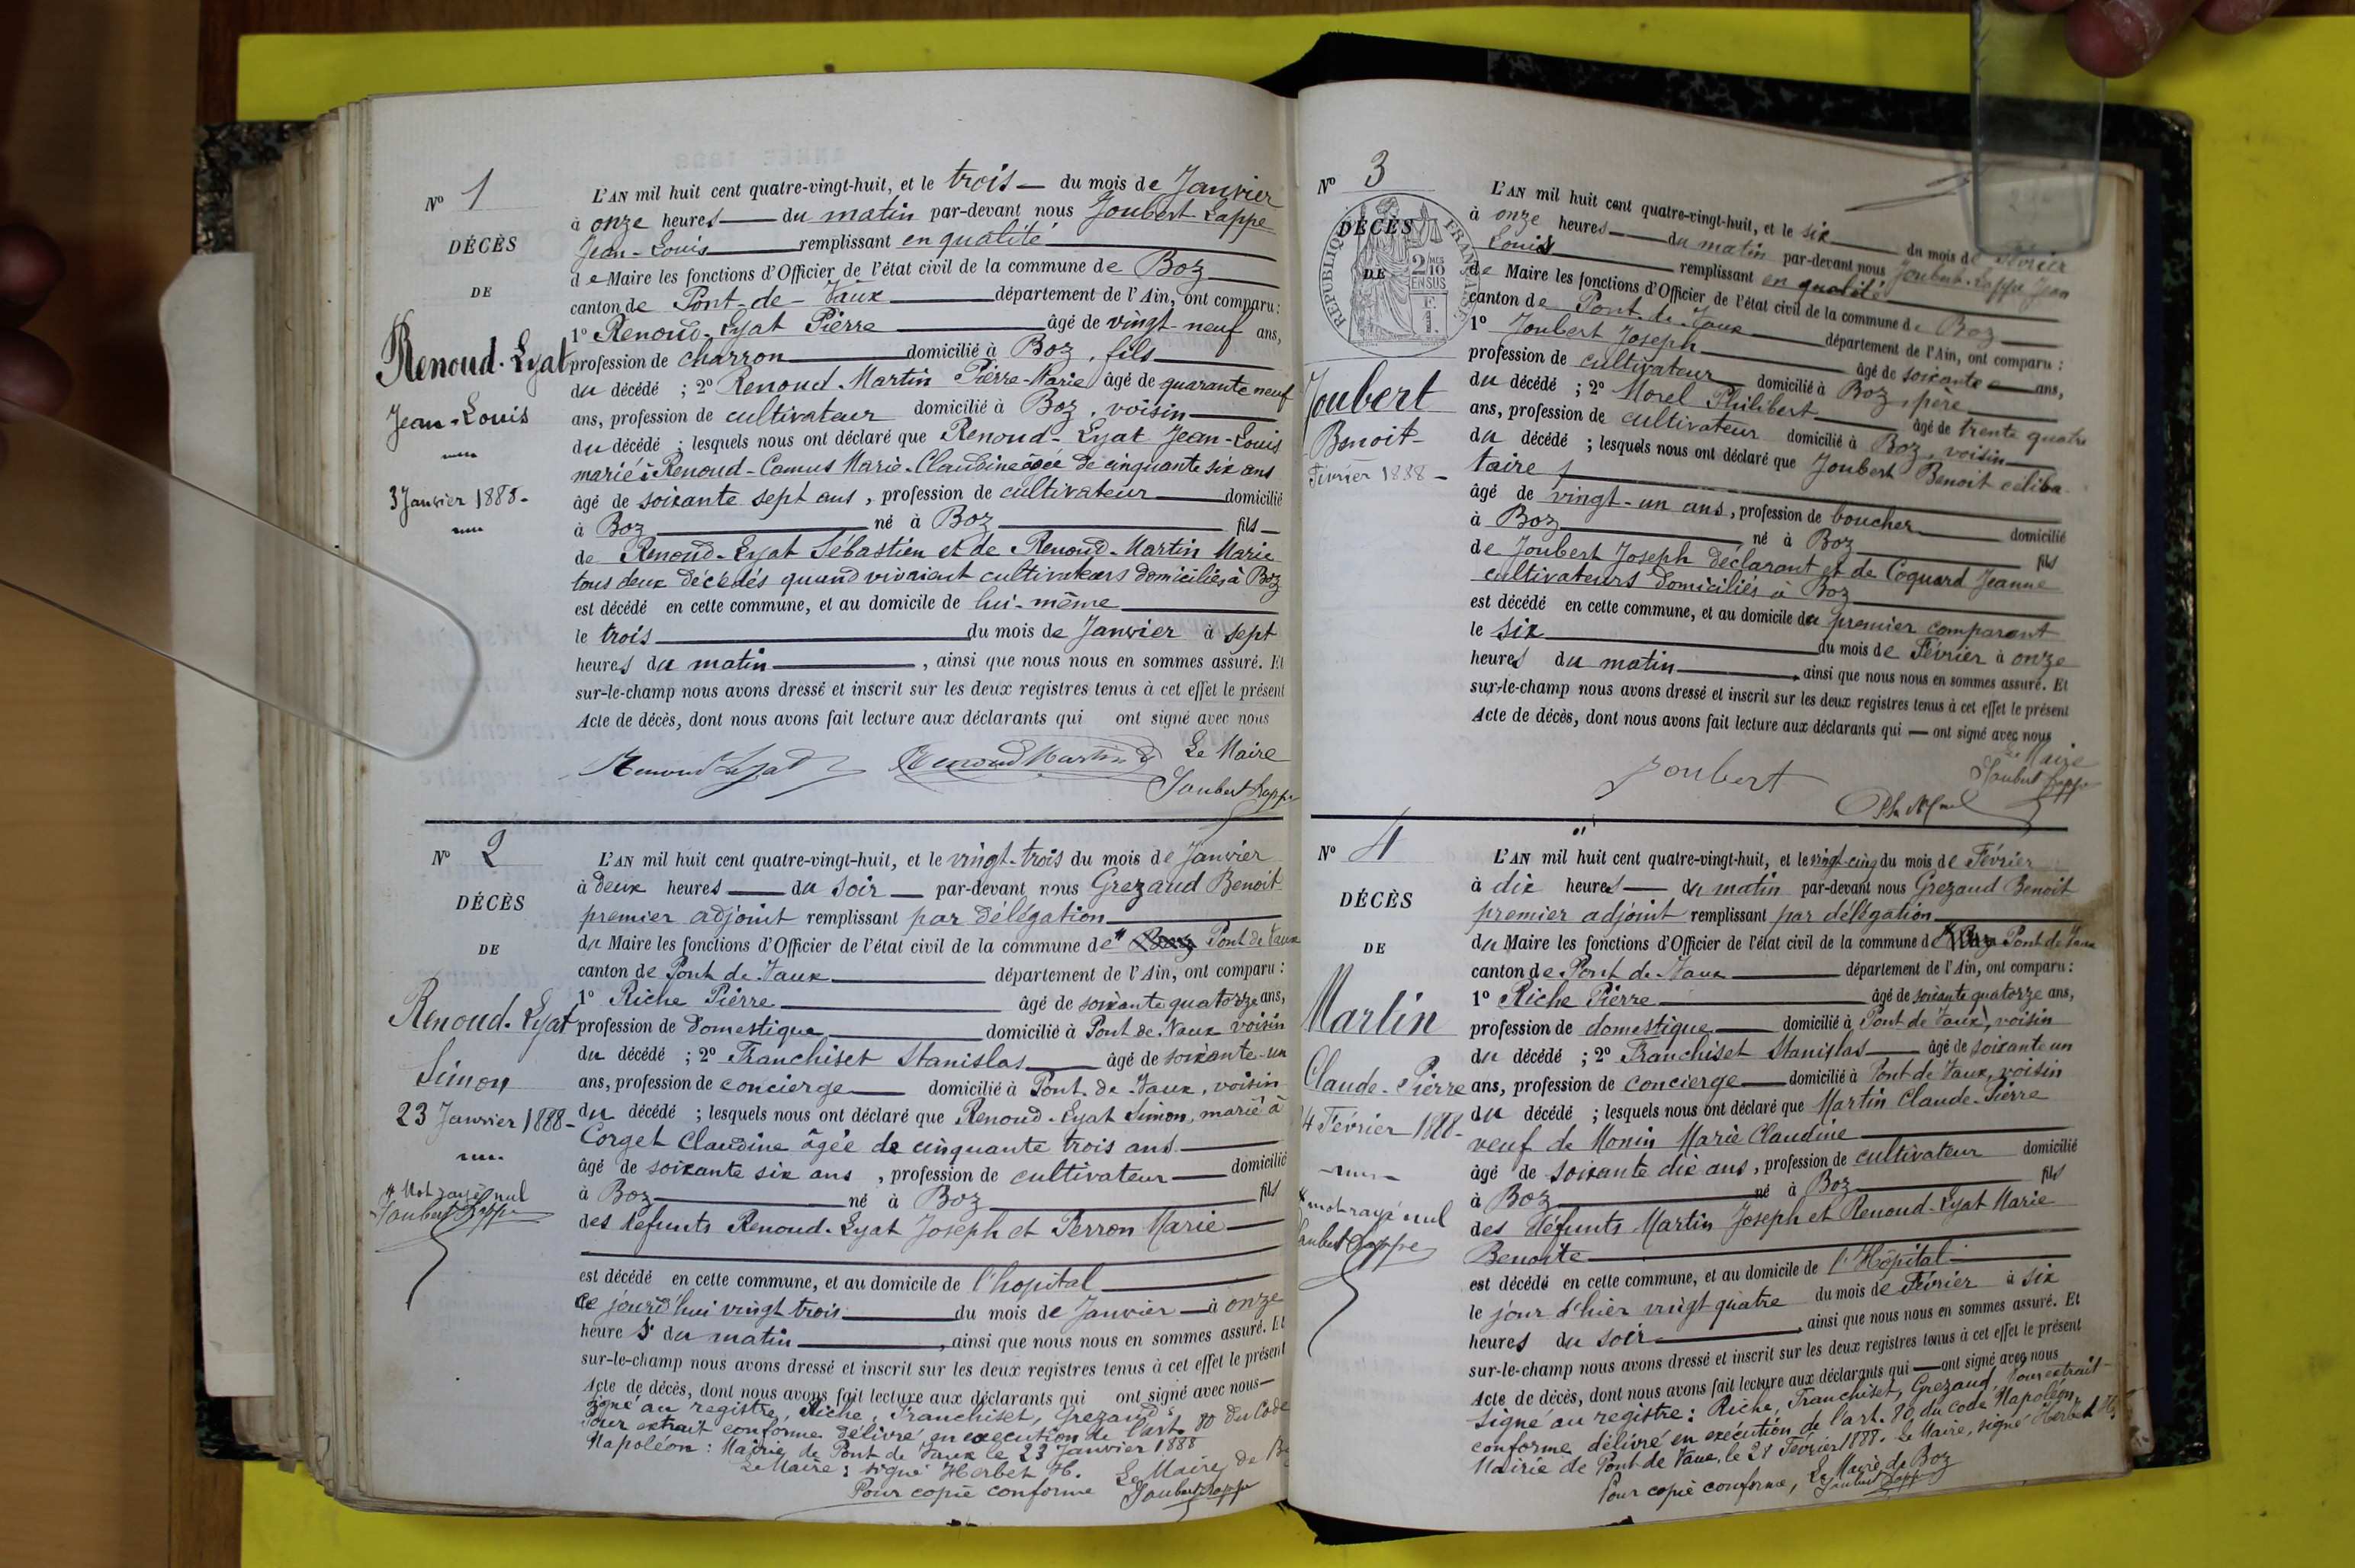 Nº 1
DÉCÈS
DE
Renoud-Lyat
Jean-Louis
3 Janvier 1888-
L'AN mil huit cent quatre-vingt-huit, et le trois du mois de Janvier
à onze heures du matin par-devant nous Joubert-Lappe
Jean-Louis remplissant en qualité
de Maire les fonctions d'Officier de l'état civil de la commune de Boz
canton de Pont-de-Vaux département de l'Ain, ont comparu :
1º Renoud-Lyat Pierre âgé de vingt-neuf ans,
profession de charron domicilié à Boz, fils
du décédé ; 2º Renoud-Martin Pierre-Marie âgé de quarante neuf
ans, profession de cultivateur domicilié à Boz, voisin
du décédé ; lesquels nous ont déclaré que Renoud-Lyat Jean-Louis
marié à Renoud-Camus Marie-Claudine âgée de cinquante six ans
âgé de soixante sept ans, profession de cultivateur domicilié
à Boz né à Boz fils
de Renoud-Lyat Sébastien et de Renoud-Martin Marie
tous deux décédés quand vivaient cultivateurs domiciliés à Boz
est décédé en cette commune, et au domicile de lui-même
le trois du mois de Janvier à sept
heures du matin, ainsi que nous nous en sommes assuré. Et
sur-le-champ nous avons dressé et inscrit sur les deux registres tenus à cet effet le présent
Acte de décès, dont nous avons fait lecture aux déclarants qui ont signé avec nous
Renoud Lyat Renoud Martin Le Maire
Joubert Lappe
Nº 2
DÉCÈS
DE
Renoud-Lyat
Simon
23 Janvier 1888-
Mot rayé nul
Joubert Lappe
L'AN mil huit cent quatre-vingt-huit, et le vingt-trois du mois de Janvier
à deux heures du soir par-devant nous Grezaud Benoit
premier adjoint remplissant par délégation
du Maire les fonctions d'Officier de l'état civil de la commune de Boz Pont de Vaux
canton de Pont de Vaux département de l'Ain, ont comparu :
1º Riche Pierre âgé de soixante quatorze ans,
profession de domestique domicilié à Pont de Vaux voisin
du décédé ; 2º Franchiset Stanislas âgé de soixante-un
ans, profession de concierge domicilié à Pont-de-Vaux, voisin
du décédé ; lesquels nous ont déclaré que Renoud-Lyat Simon, marié à
Corget Claudine âgée de cinquante trois ans
âgé de soixante six ans, profession de cultivateur domicilié
à Boz né à Boz fils
des défunts Renoud-Lyat Joseph et Perron Marie
est décédé en cette commune, et au domicile de l'hopital
ce jourd'hui vingt trois du mois de Janvier à onze
heures du matin, ainsi que nous nous en sommes assuré. Et
sur-le-champ nous avons dressé et inscrit sur les deux registres tenus à cet effet le présent
Acte de décès, dont nous avons fait lecture aux déclarants qui ont signé avec nous
Signé au registre, Riche, Franchiset, Grezaud
Pour extrait conforme délivré en exécution de l'art. 80 du Code
Napoléon : Mairie de Pont de Vaux le 23 Janvier 1888
Le Maire : signé Herbet H.
Pour copie conforme Le Maire de
Joubert Lappe
Nº 3
DÉCÈS
DE
RÉPUBLIQUE FRANÇAISE
2/10 EN SUS
Joubert
Benoit-
Février 1888-
L'AN mil huit cent quatre-vingt-huit, et le six du mois de Février
à onze heures du matin par-devant nous Joubert-Lappe Jean
Louis remplissant en qualité
de Maire les fonctions d'Officier de l'état civil de la commune de Boz
canton de Pont-de-Vaux département de l'Ain, ont comparu :
1º Joubert Joseph âgé de soixante ans,
profession de cultivateur domicilié à Boz, père
du décédé ; 2º Morel Philibert âgé de trente quatre
ans, profession de cultivateur domicilié à Boz, voisin
du décédé ; lesquels nous ont déclaré que Joubert Benoit céliba-
taire
âgé de vingt-un ans, profession de boucher domicilié
à Boz né à Boz fils
de Joubert Joseph déclarant et de Coquard Jeanne
cultivateurs domiciliés à Boz
est décédé en cette commune, et au domicile du premier comparant
le six du mois de Février à onze
heures du matin, ainsi que nous nous en sommes assuré. Et
sur-le-champ nous avons dressé et inscrit sur les deux registres tenus à cet effet le présent
Acte de décès, dont nous avons fait lecture aux déclarants qui ont signé avec nous
Le Maire
Joubert Joubert Lappe
Nº 4
DÉCÈS
DE
Martin
Claude-Pierre
4 Février 1888-
mot rayé nul
Joubert Lappe
L'AN mil huit cent quatre-vingt-huit, et le vingt-cinq du mois de Février
à dix heures du matin par-devant nous Grezaud Benoit
premier adjoint remplissant par délégation
du Maire les fonctions d'Officier de l'état civil de la commune de Boz Pont de Vaux
canton de Pont de Vaux département de l'Ain, ont comparu :
1º Riche Pierre âgé de soixante quatorze ans,
profession de domestique domicilié à Pont de Vaux, voisin
du décédé ; 2º Franchiset Stanislas âgé de soixante un
ans, profession de concierge domicilié à Pont de Vaux, voisin
du décédé ; lesquels nous ont déclaré que Martin Claude-Pierre
veuf de Monin Marie Claudine
âgé de soixante dix ans, profession de cultivateur domicilié
à Boz né à Boz fils
des défunts Martin Joseph et Renoud-Lyat Marie
Benoite
est décédé en cette commune, et au domicile de l'Hôpital
le jour d'hier vingt quatre du mois de Février à six
heures du soir, ainsi que nous nous en sommes assuré. Et
sur-le-champ nous avons dressé et inscrit sur les deux registres tenus à cet effet le présent
Acte de décès, dont nous avons fait lecture aux déclarants qui ont signé avec nous
Signé au registre : Riche, Franchiset, Grezaud Pour extrait
conforme délivré en exécution de l'art. 80 du code Napoléon,
Mairie de Pont de Vaux, le 28 Février 1888. Le Maire, signé Herbet H.
Pour copie conforme, Le Maire de Boz
Joubert Lappe